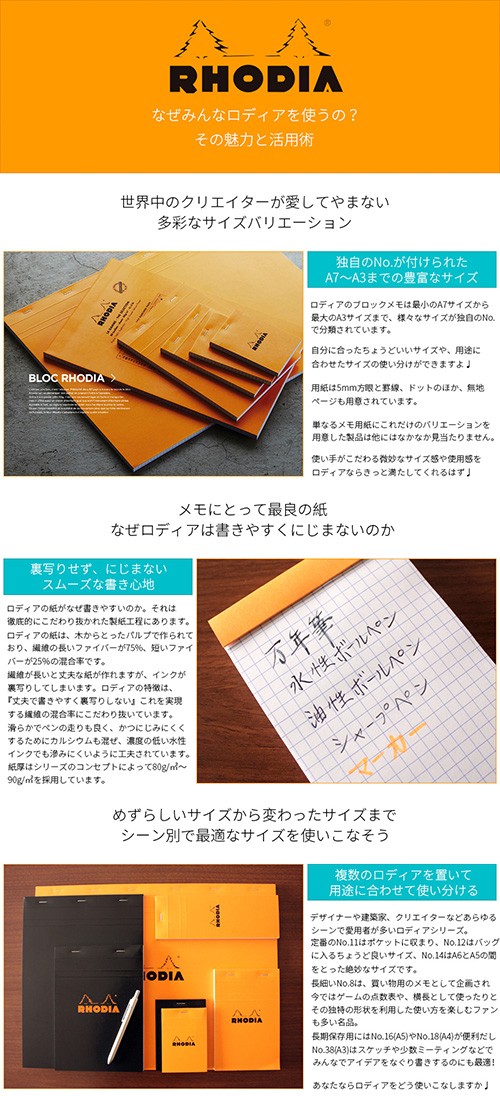 RHODIA
なぜみんなロディアを使うの？
その魅力と活用術
世界中のクリエイターが愛してやまない
多彩なサイズバリエーション
RHODIA
RHODIA
BLOC RHODIA
独自のNo.が付けられた
A7〜A3までの豊富なサイズ
ロディアのブロックメモは最小のA7サイズから
最大のA3サイズまで、様々なサイズが独自のNo.
で分類されています。
自分に合ったちょうどいいサイズや、用途に
合わせたサイズの使い分けができますよ♩
用紙は5mm方眼と罫線、ドットのほか、無地
ページも用意されています。
単なるメモ用紙にこれだけのバリエーションを
用意した製品は他にはなかなか見当たりません。
使い手がこだわる微妙なサイズ感や使用感を
ロディアならきっと満たしてくれるはず♩
メモにとって最良の紙
なぜロディアは書きやすくにじまないのか
裏写りせず、にじまない
スムーズな書き心地
ロディアの紙がなぜ書きやすいのか。それは
徹底的にこだわり抜かれた製紙工程にあります。
ロディアの紙は、木からとったパルプで作られて
おり、繊維の長いファイバーが75%、短いファイ
バーが25%の混合率です。
繊維が長いと丈夫な紙が作れますが、インクが
裏写りしてしまいます。ロディアの特徴は、
『丈夫で書きやすく裏写りしない』これを実現
する繊維の混合率にこだわり抜いています。
滑らかでペンの走りも良く、かつにじみにくく
するためにカルシウムも混ぜ、濃度の低い水性
インクでも滲みにくいように工夫されています。
紙厚はシリーズのコンセプトによって80g/㎡〜
90g/㎡を採用しています。
万年筆
水性ボールペン
油性ボールペン
シャープペン
マーカー
めずらしいサイズから変わったサイズまで
シーン別で最適なサイズを使いこなそう
RHODIA
RHODIA
RHODIA
RHODIA
複数のロディアを置いて
用途に合わせて使い分ける
デザイナーや建築家、クリエイターなどあらゆる
シーンで愛用者が多いロディアシリーズ。
定番のNo.11はポケットに収まり、No.12はバッグ
に入るちょうど良いサイズ、No.14はA6とA5の間
をとった絶妙なサイズです。
長細いNo.8は、買い物用のメモとして企画され
今ではゲームの点数表や、横長として使ったりと
その独特の形状を利用した使い方を楽しむファン
も多い名品。
長期保存用にはNo.16(A5)やNo.18(A4)が便利だし
No.38(A3)はスケッチや少数ミーティングなどで
みんなでアイデアをなぐり書きするのにも最適!
あなたならロディアをどう使いこなしますか♩